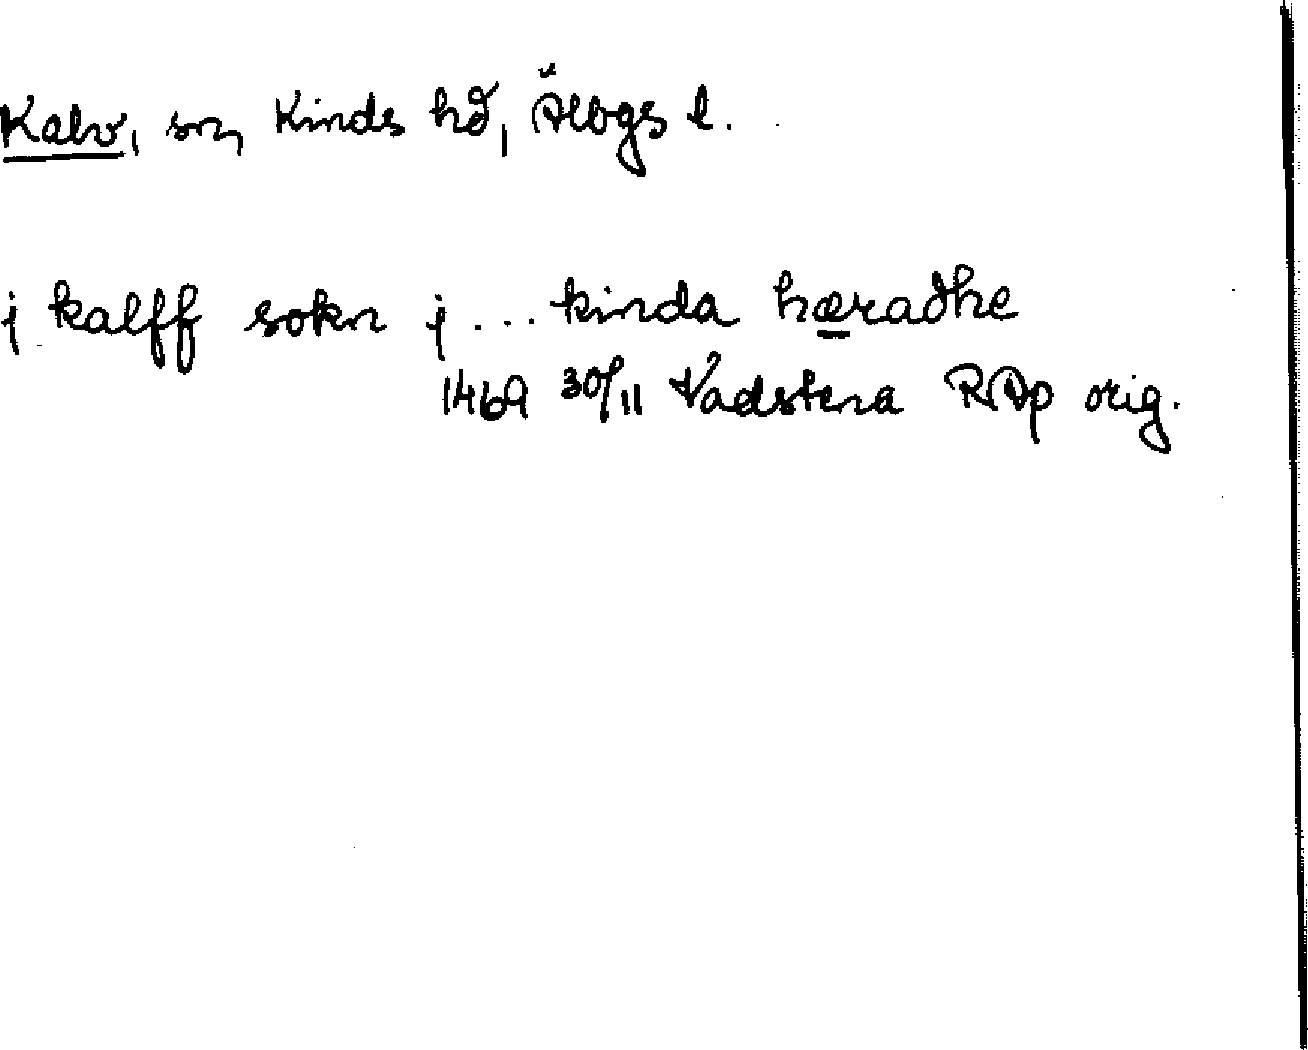 Kalv, sn, Kinds hd, Älvbgs l.
j kalff sokn j ... kinda hæradhe
1469 30/11 Vadstena RAp orig.